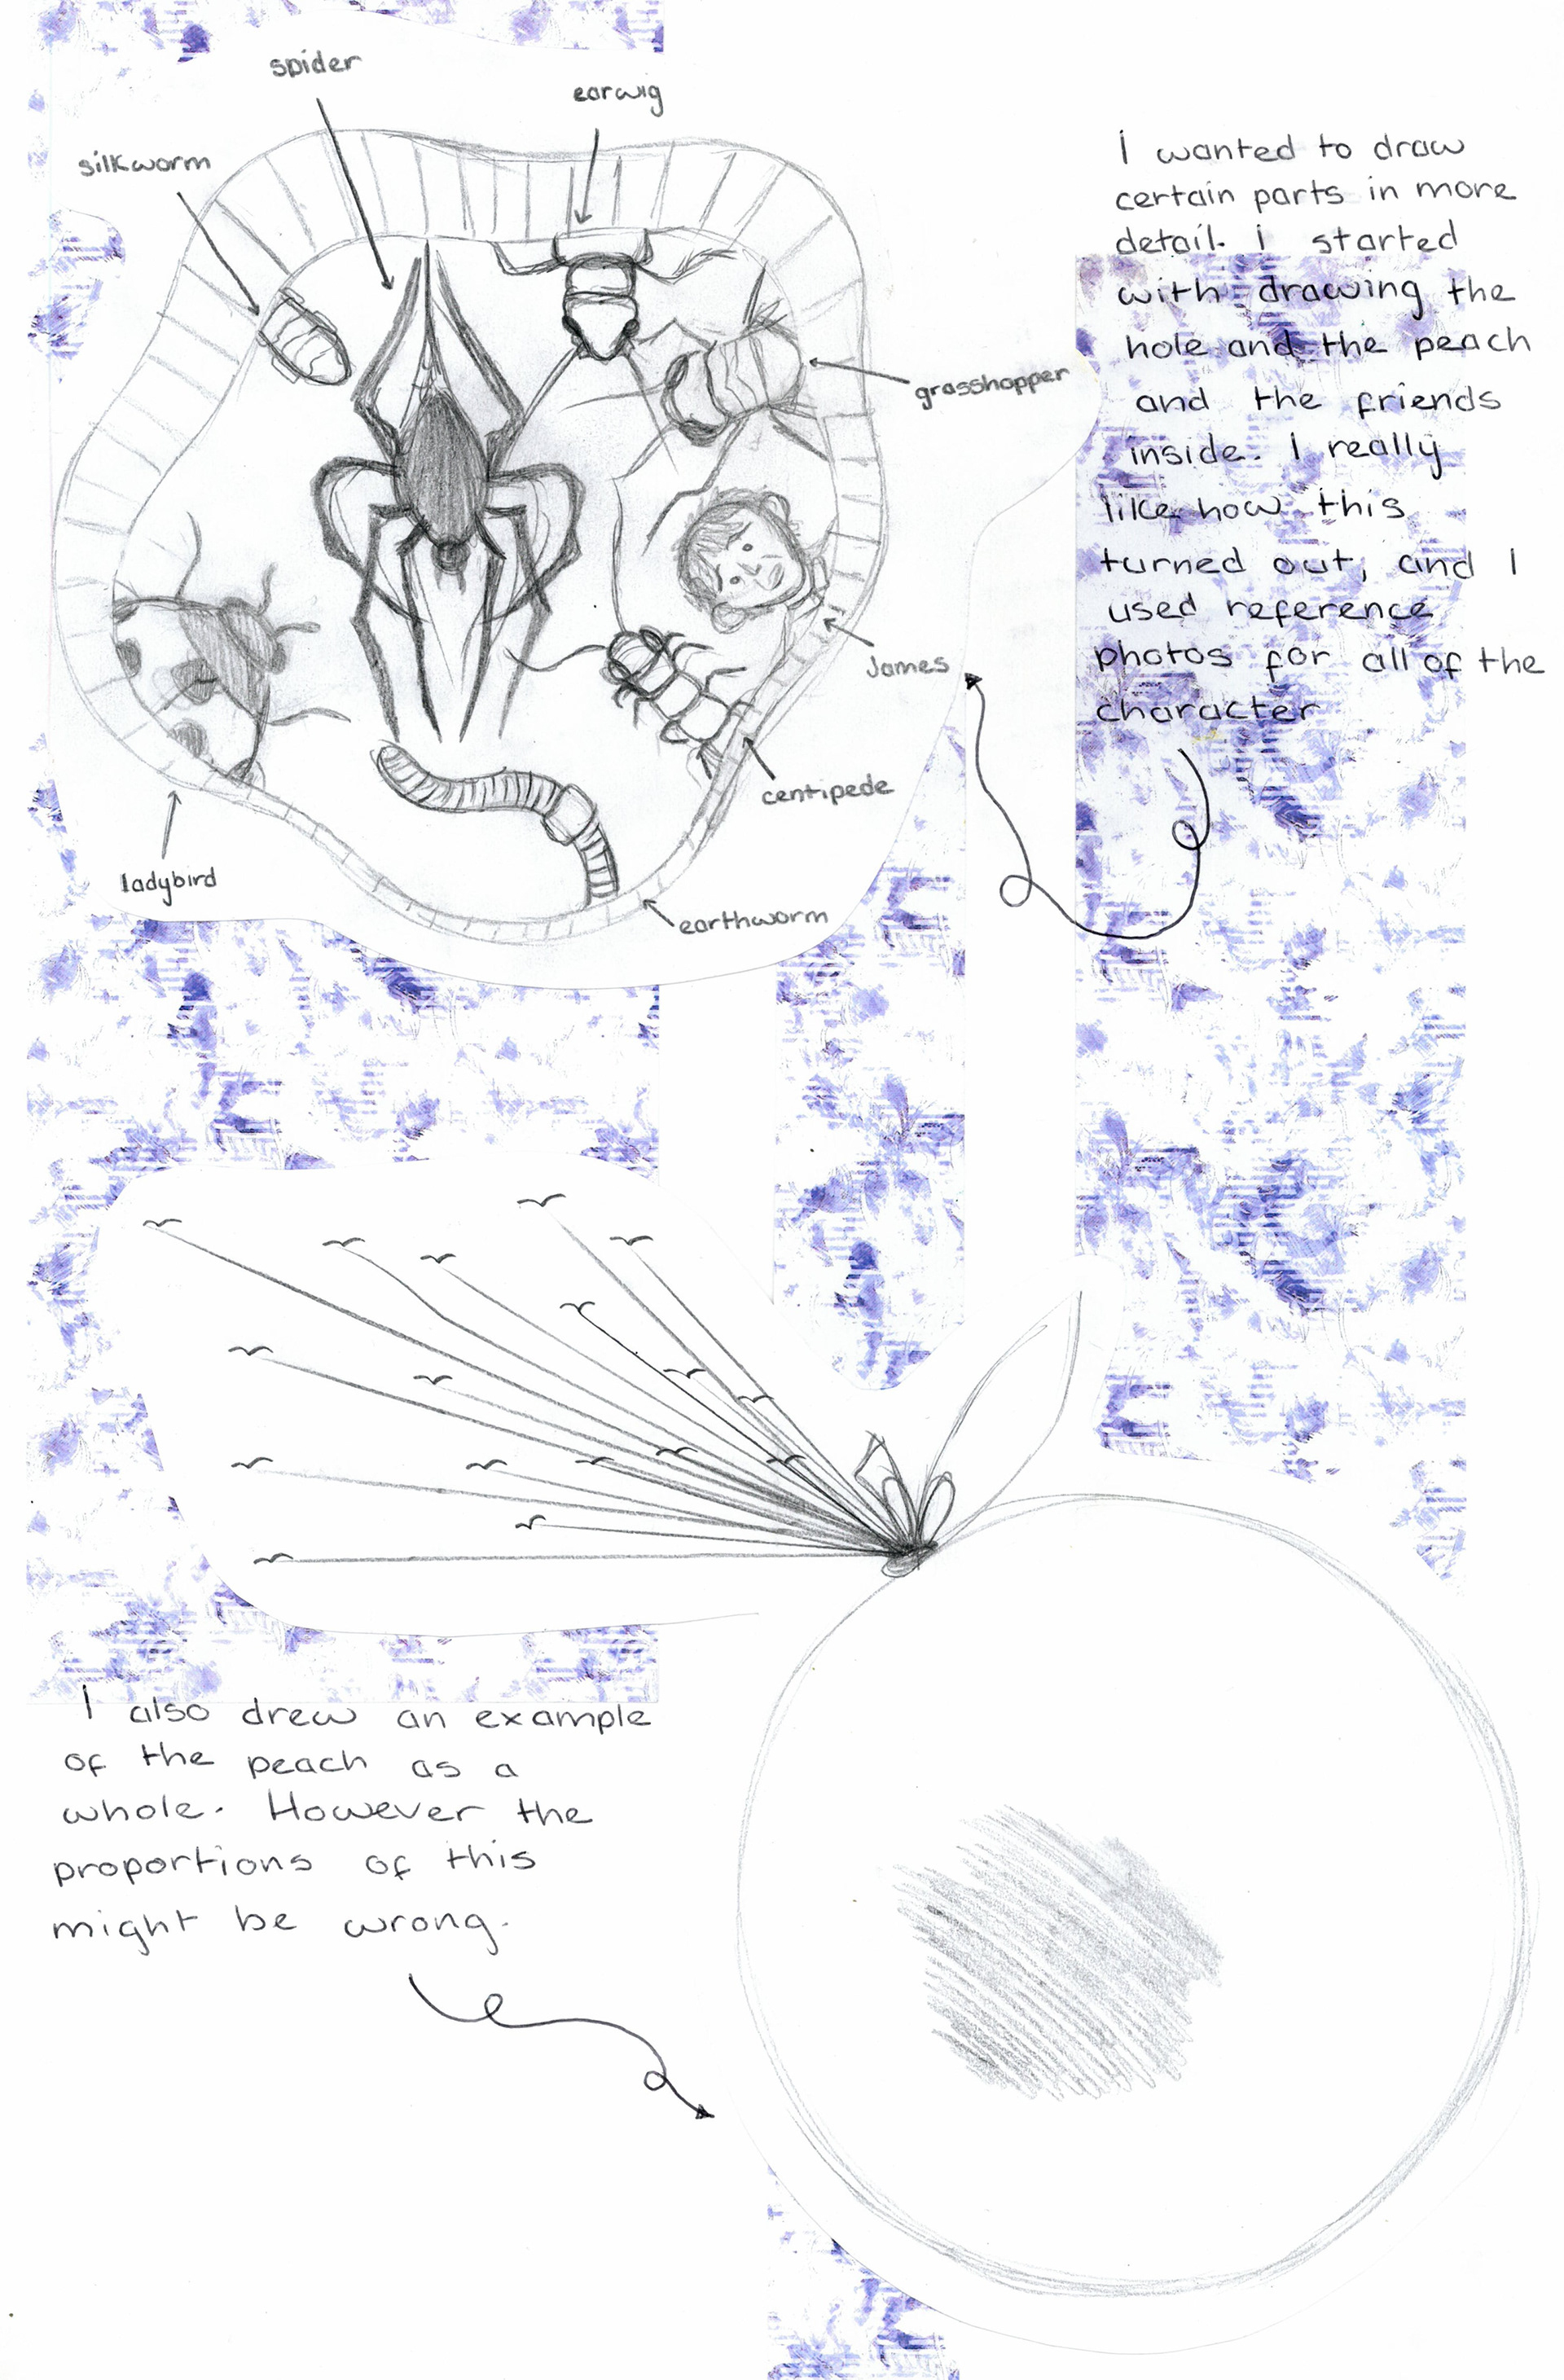 spider
earwig
silkworm
grasshopper
James
centipede
ladybird
earthworm
I wanted to draw
certain parts in more
detail. i started
with drawing the
hole and the peach
and the friends
inside. I really
like how this
turned out, and I
used reference
photos for all of the
character
I also drew an example
of the peach as a
whole. However the
proportions of this
might be wrong.